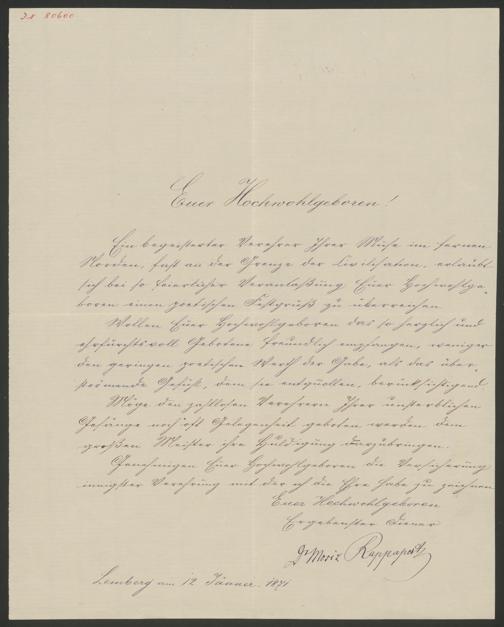 I.N. 80600
Euer Hochwohlgeboren!
Ein begeisterter Verehrer Ihrer Muse im fernen
Norden, fast an der Grenze der Civilisation, erlaubt
sich bei so feierlicher Veranlaßung Euer Hochwohlge-
boren einen poetischen Festgruß zu überreichen.
Wollen Euer Hochwohlgeboren das so herzlich und
ehrfurchtsvoll Gebotene freundlich empfangen, weniger
den geringen poetischen Werth der Gabe, als das über-
strömende Gefühl, dem sie entquollen, berücksichtigend.
Möge den zahllosen Verehrern Ihrer unsterblichen
Gesänge noch oft Gelegenheit geboten werden dem
großen Meister ihre Huldigung darzubringen.
Genehmigen Euer Hochwohlgeboren die Versicherung
innigster Verehrung mit der ich die Ehre habe zu zeichnen
Euer Hochwohlgeboren
Ergebenster Diener
Dr Moriz Rappaport
Lemberg am 12 Jänner 1871